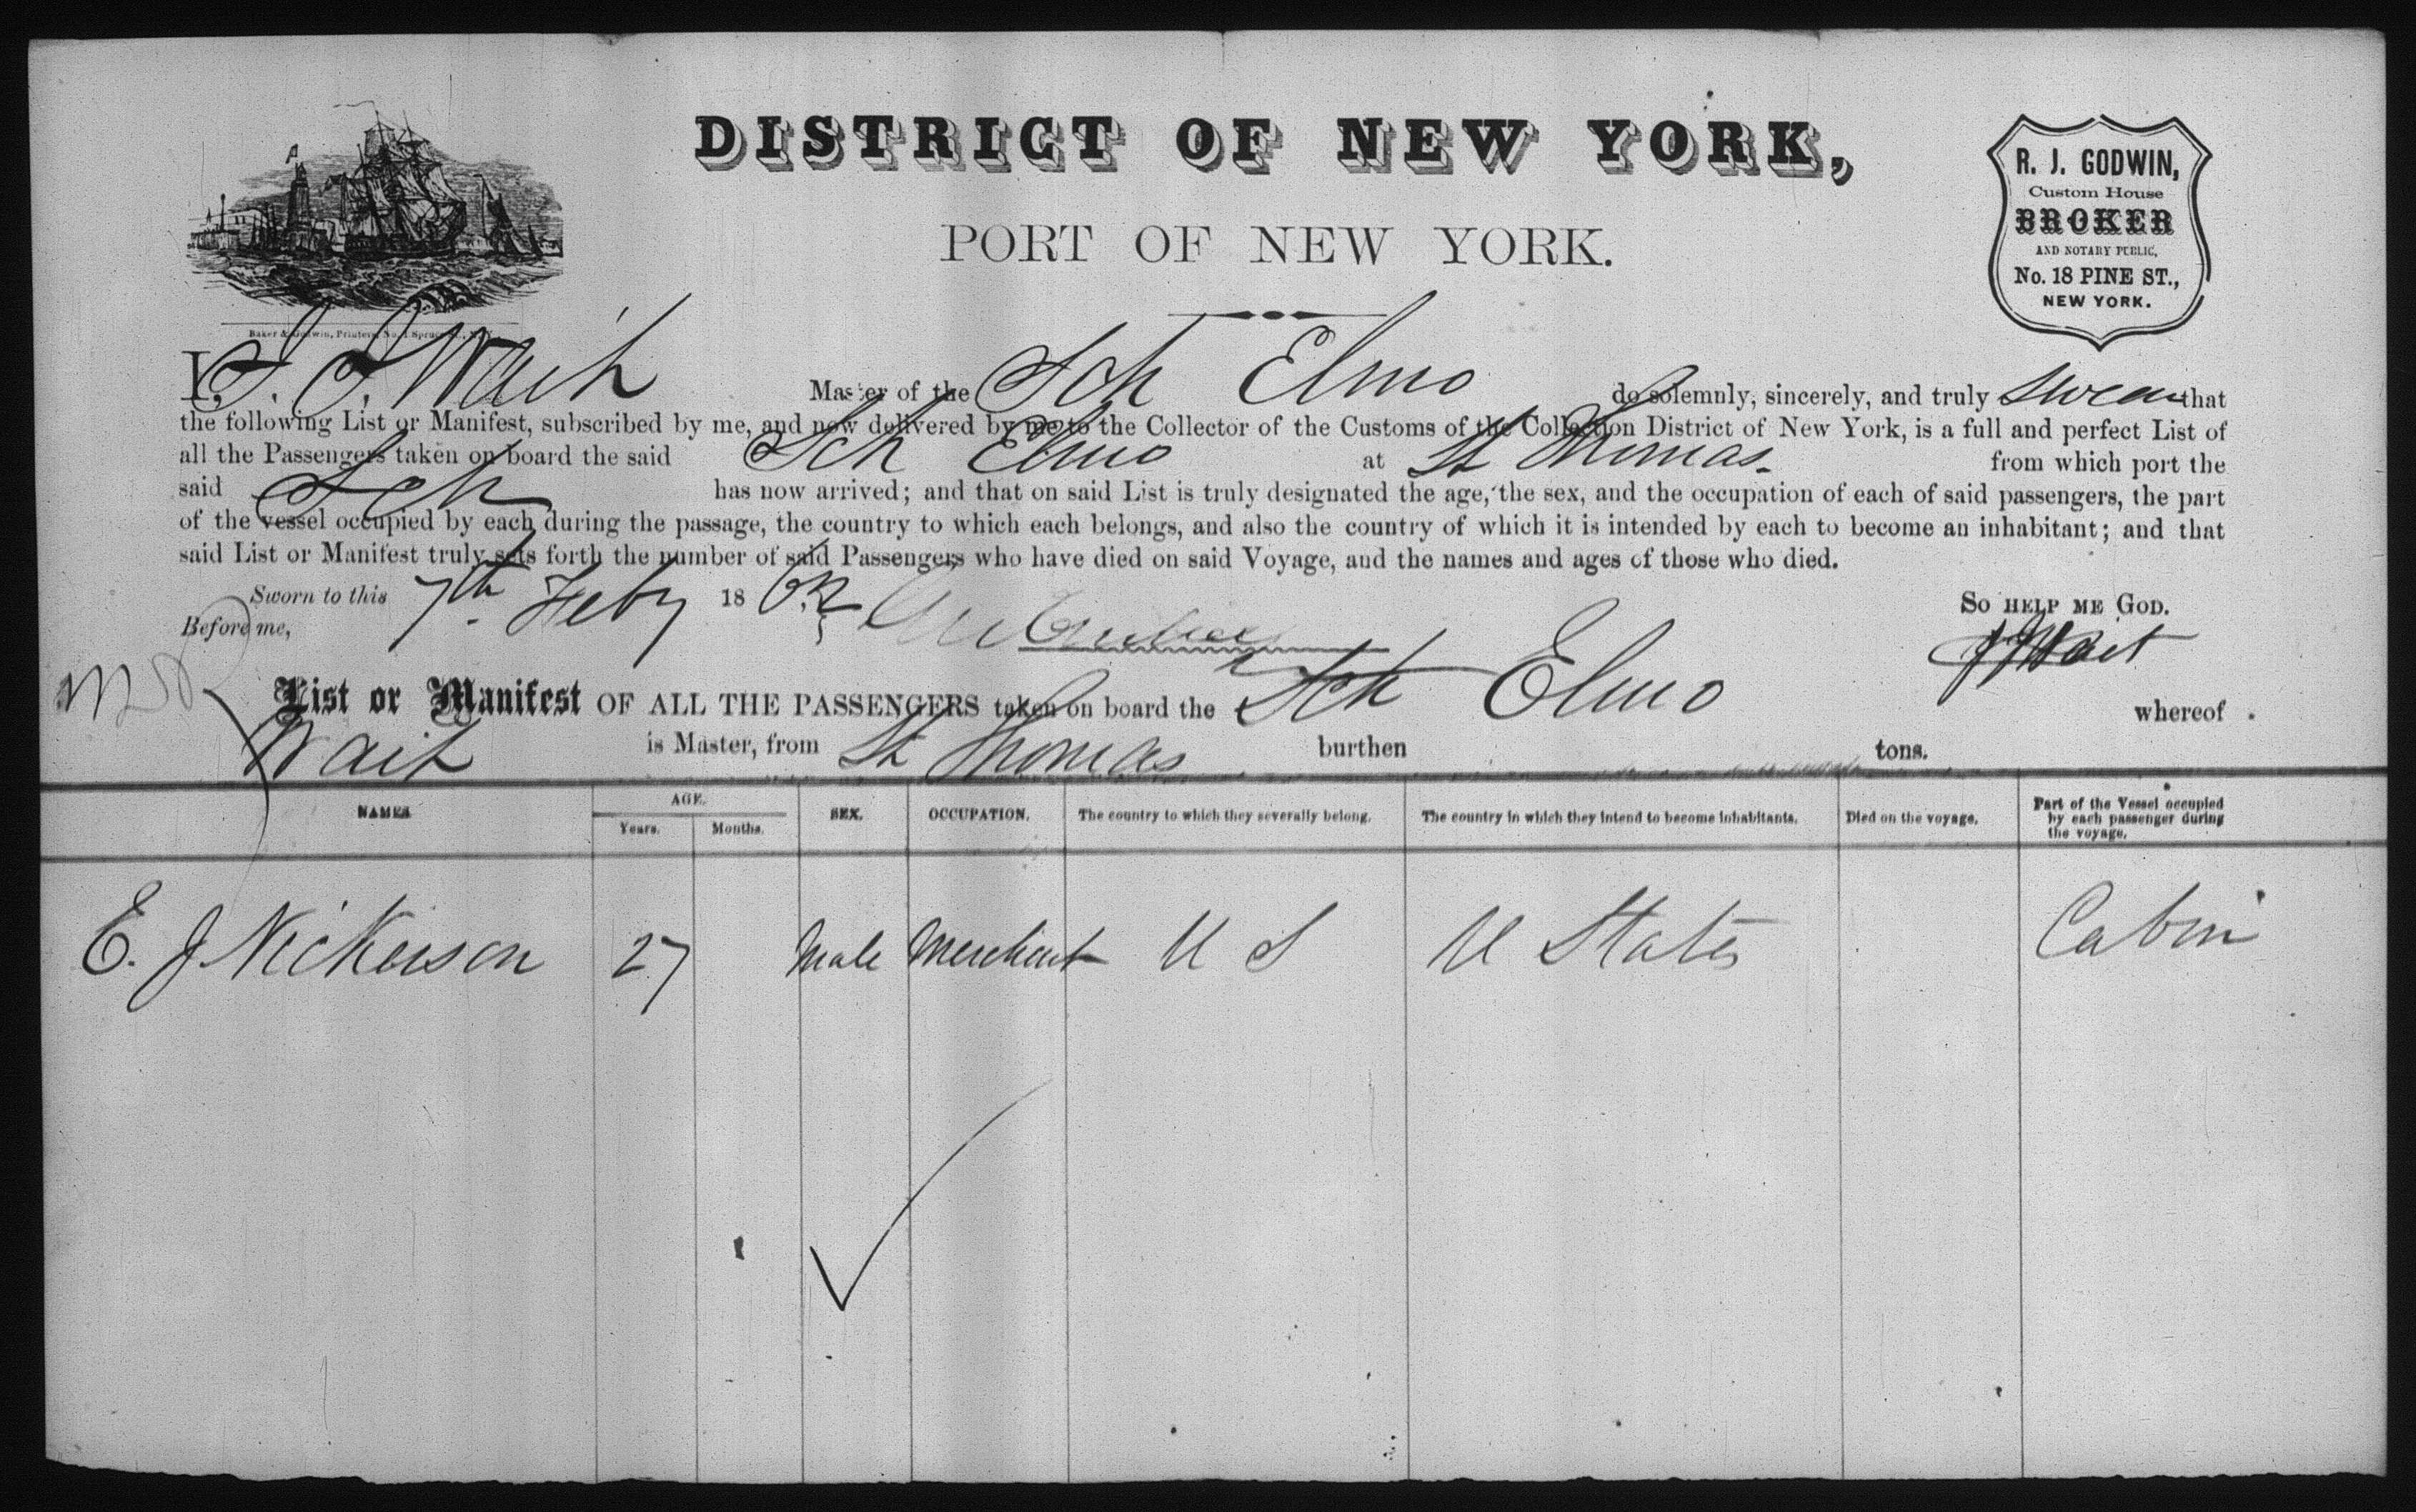 DISTRICT OF NEW YORK,
PORT OF NEW YORK.
R. J. GODWIN,
Custom House
BROKER
AND NOTARY PUBLIC,
No. 18 PINE ST.,
NEW YORK.
Baker & Godwin, Printers, No. 1 Spruce St., N. Y.
I, Wait Master of the Sch Elmo do solemnly, sincerely, and truly swear that
the following List or Manifest, subscribed by me, and now delivered by me to the Collector of the Customs of the Collection District of New York, is a full and perfect List of
all the Passengers taken on board the said Sch Elmo at St Thomas from which port the
said Sch has now arrived; and that on said List is truly designated the age, the sex, and the occupation of each of said passengers, the part
of the vessel occupied by each during the passage, the country to which each belongs, and also the country of which it is intended by each to become an inhabitant; and that
said List or Manifest truly sets forth the number of said Passengers who have died on said Voyage, and the names and ages of those who died.
Sworn to this 7th Feby 1862 SO HELP ME GOD.
Before me, Wait
List or Manifest OF ALL THE PASSENGERS taken on board the Sch Elmo whereof
Wait is Master, from St Thomas burthen tons.
NAMES AGE. SEX. OCCUPATION. The country to which they severally belong. The country in which they intend to become inhabitants. Died on the voyage. Part of the Vessel occupied by each passenger during the voyage.
Years. Months.
E. J Nickerson 27 Male Merchant U S U States Cabin